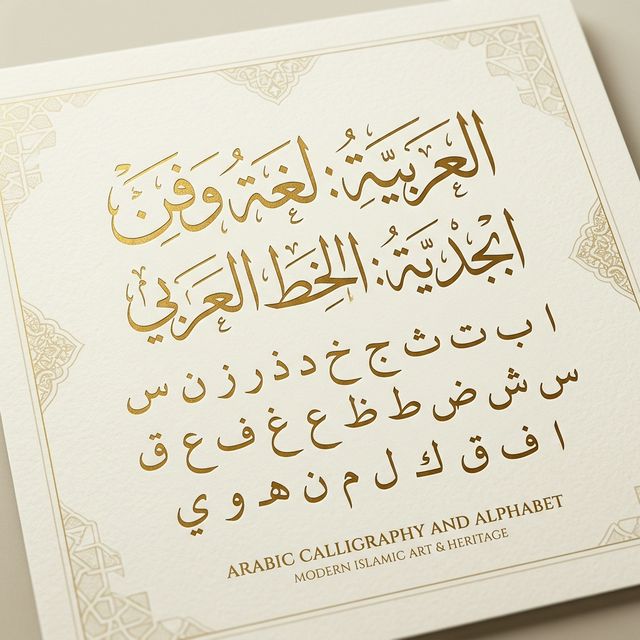 العَرَبِيَّةُ: لغَةُ وَفِنْ
ابْجَدِيَّةُ: الخِطَ العَرَبي
ا ب ت ث ج خ د ذ ر ز ن س
س ش ض ط ظ ع غ ف ع ق
ا ف ق ك ل م ن ه و ي
ARABIC CALLIGRAPHY AND ALPHABET
MODERN ISLAMIC ART & HERITAGE